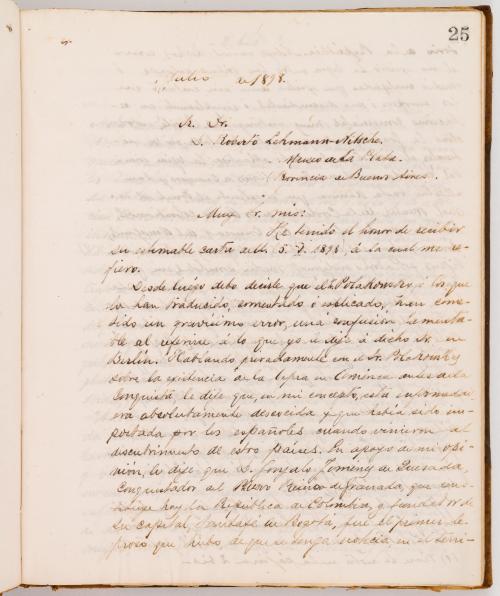 25
Julio de 1898.
Sr. Dr.
D. Roberto Lehmann-Nitsche.
Museo de La Plata.
(Provincia de Buenos Aires.
Muy Sr. mio:
He tenido el honor de recibir
su estimable carta del 5. 7. 1898, á la cual me re-
fiero.
Desde luego debo decirle que el Dr. Polakowsky ó los que
lo han traducido, comentado i esplicado, han come-
tido un gravísimo error, una confusion lamenta-
ble al referirse á lo que yo le dije á dicho Sr. en
Berlin. Hablando privadamente con el Dr. Polakowsky
sobre la existencia de la lepra en América antes de la
Conquista, le dije que, en mi concepto, esta enfermedad
era absolutamente desconocida y que habia sido im-
portada por los españoles cuando vinieron al
descubrimiento de estos países. En apoyo de mi opi-
nión, le dije que D. Gonzalo Jimenez de Quesada,
Conquistador del Nuevo Reino de Granada, que cons-
tituye hoy la República de Colombia, y fundador de
su capital, Santafé de Bogotá, fué el primer le-
proso que hubo de que se tenga noticia en el terri-